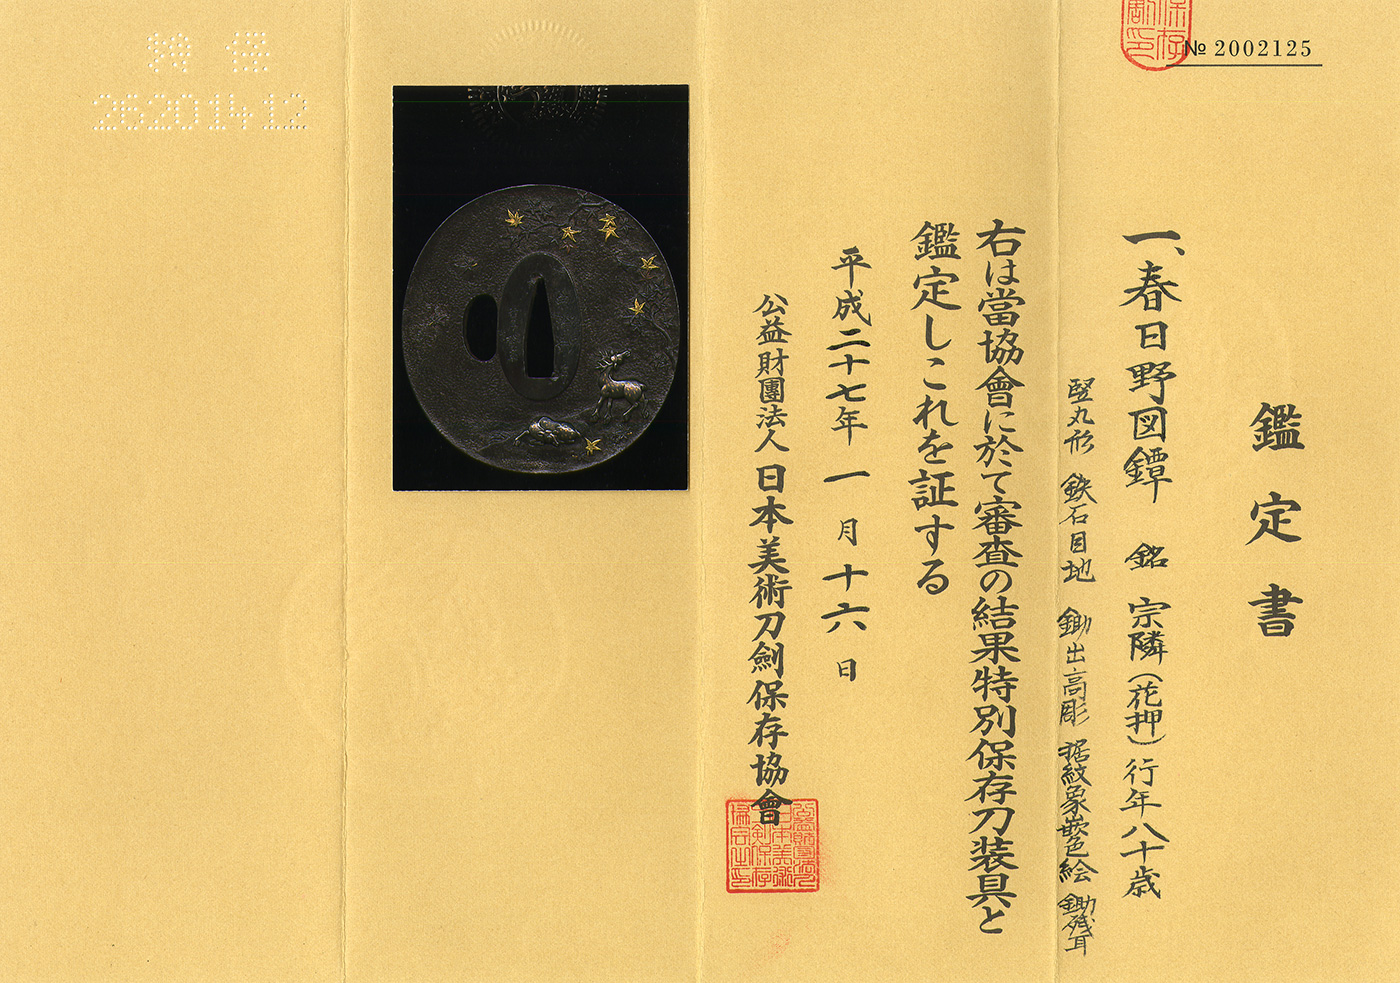 № 2002125
鑑定書
一、春日野図鐔 銘 宗隣(花押)行年八十歳
竪丸形 鉄石目地 鋤出高彫 据紋象嵌色絵 鋤残耳
右は當協會に於て審査の結果特別保存刀装具と
鑑定しこれを証する
平成二十七年一月十六日
公益財團法人 日本美術刀劍保存協會
26201412